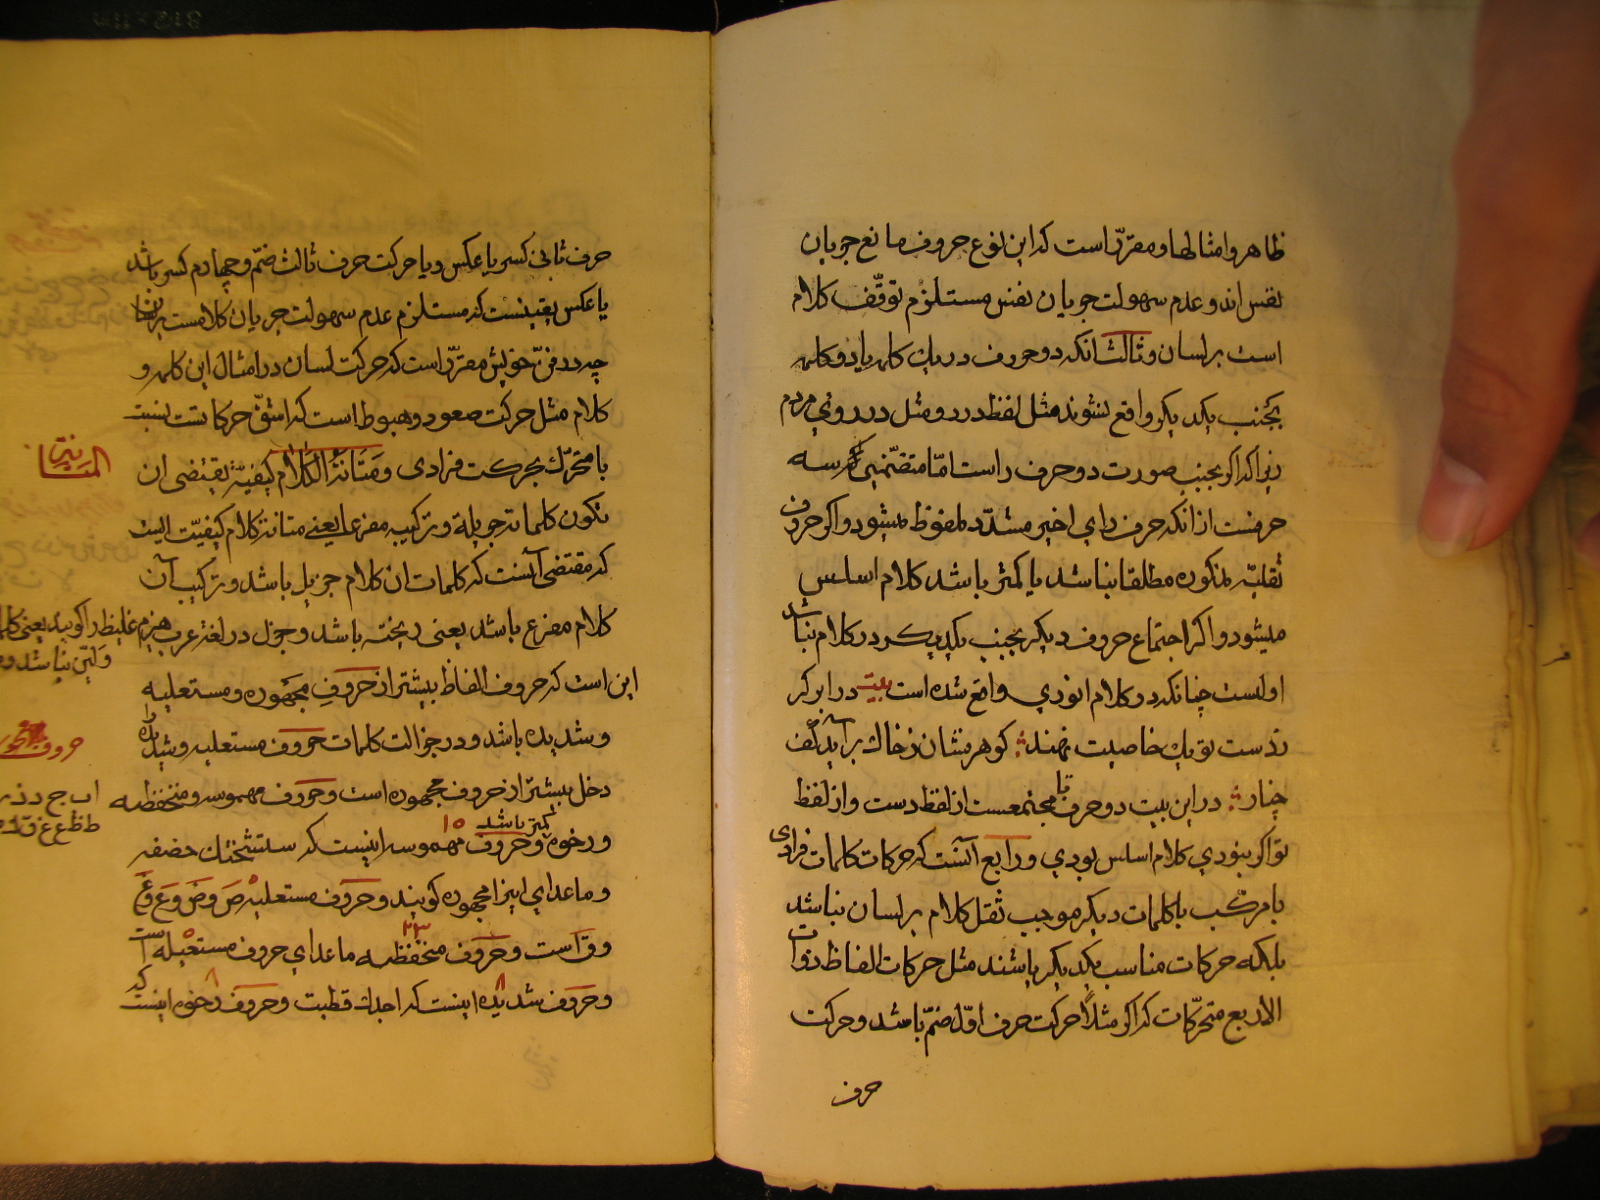 ظاهر و امثالها و مقرّر است که این نوع حروف مانع جریان
نفس اند و عدم سهولت جریان نفس مستلزم توقّف کلام
است بر لسان و ثالث انکه دو حرف در یك کلمه یا دو کلمه
بجنب یکدیکر واقع نشوند مثل لفظ درر و مثل در روی مردم
زیرا که اکر بجنب صورت دو حرف راست امّا متضمّن سه
حرفست از انکه حرف رای اخیر مشدّد ملفوظ میشود و اکر حروف
ثقلیّه مذکوره مطلقا نباشد یا کمتر باشد کلام اسلس
میشود و اکر اجتماع حروف دیکر بجنب یکدیکر در کلام نباشد
اولست چنانکه در کلام انوری واقع شده است بیت در ابر کر
ز دست تو یك خاصیت نهند کوهر فشان ز خاك بر آید کف
چنار در این بیت دو حرف تا مجتمعست از لفظ دست و از لفظ
تو اکر نبودی کلام اسلس بودی و رابع آنست که حرکات کلمات فرادی
یا مرکّب با کلمات دیکر موجب ثقل کلام بر لسان نباشد
بلکه حرکات مناسب یکدیکر باشند مثل حرکات الفاظ ذوات
الاربع متحرّکات که اکر مثلاً حرکت حرف اوّل ضمّ باشد و حرکت
حرف
حرف ثانی کسر یا عکس و یا حرکت حرف ثالث ضمّ و چهارم کسر باشد
یا عکس یقینست که مستلزم عدم سهولت جریان کلامست بر زبان
چه در فنّ خویش مقرّر است که حرکت لسان در امثال این کلمه و
کلام مثل حرکت صعود و هبوط است که اشقّ حرکاتست نسبت
با متحرّك بحرکت فرادی و متانة الکلام کیفیّة یقتضی ان
تکون کلماته جزیلة و ترکیبه مفرغا یعنی متانة کلام کیفیّت است
که مقتضی آنست که کلمات ان کلام جزیل باشد و ترکیب آن
کلام مفرغ باشد یعنی ریخته باشد و جزل در لغة عرب هیزم غلیظ را کویند یعنی
ولیّن نباشد
این است که حروف الفاظ بیشتر از حروف مجهوره و مستعلیه
و شدیده باشد و در جزالت کلمات حروف مستعلیه و شدیده را
دخل بیشتر از حروف مجهوره است و حروف مهموسه و منخفظه
و رخوه کمتر باشد و حروف مهموسه ۱۰ اینست که ستشحثك خصفه
و ما عدای اینرا مجهوره کویند و حروف مستعلیه ص و ض و ع و غ
و ق است و حروف منخفظه ۲۳ ما عدای حروف مستعلیه است
و حروف شدیده ۸ اینست که اجدك قطبت و حروف رخوه ۸ اینست که
المتانة
حروف
ا ب ج د ذ ر
ط ظ ع غ ق